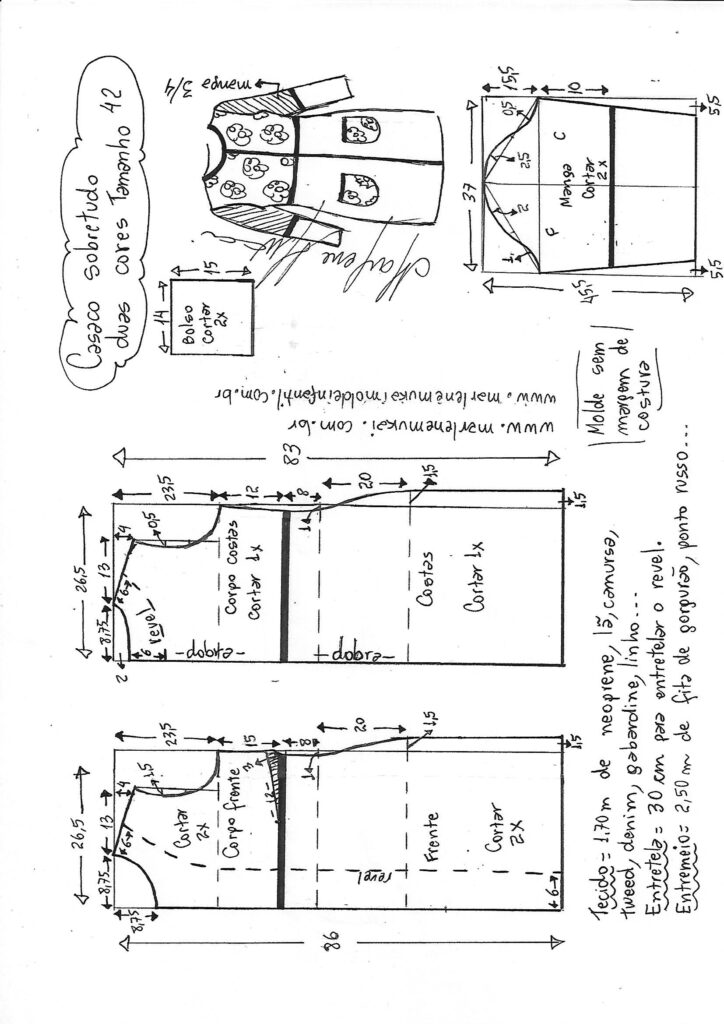 Casaco sobretudo
duas cores Tamanho 42
manga 3/4
Marlene Mukai
15
14
Bolso
Cortar
2x
37
15,5
10
0,5
2,5
2
1
C
F
Manga
Cortar
2x
45,5
5,5
5,5
www.marlenemukaimoldeinfantil.com.br
www.marlenemukai.com.br
Molde sem
margem de
costura
83
23,5
12
8
20
1,5
26,5
8,75
13
4
0,5
6
revel
2
6
Corpo costas
Cortar 1x
-dobra-
-dobra-
1
Costas
Cortar 1x
1,5
86
23,5
15
8
20
1,5
26,5
8,75
13
4
1,5
6
8,75
Cortar
2x
Corpo frente
3
-12-
1
revel
Frente
Cortar
2x
6
1,5
Tecido = 1,70m de neoprene, lã, camursa,
tweed, denim, gabardine, linho...
Entretela = 30 cm para entretelar o revel.
Entremeio = 2,50 m de fita de gorgurão, ponto russo...